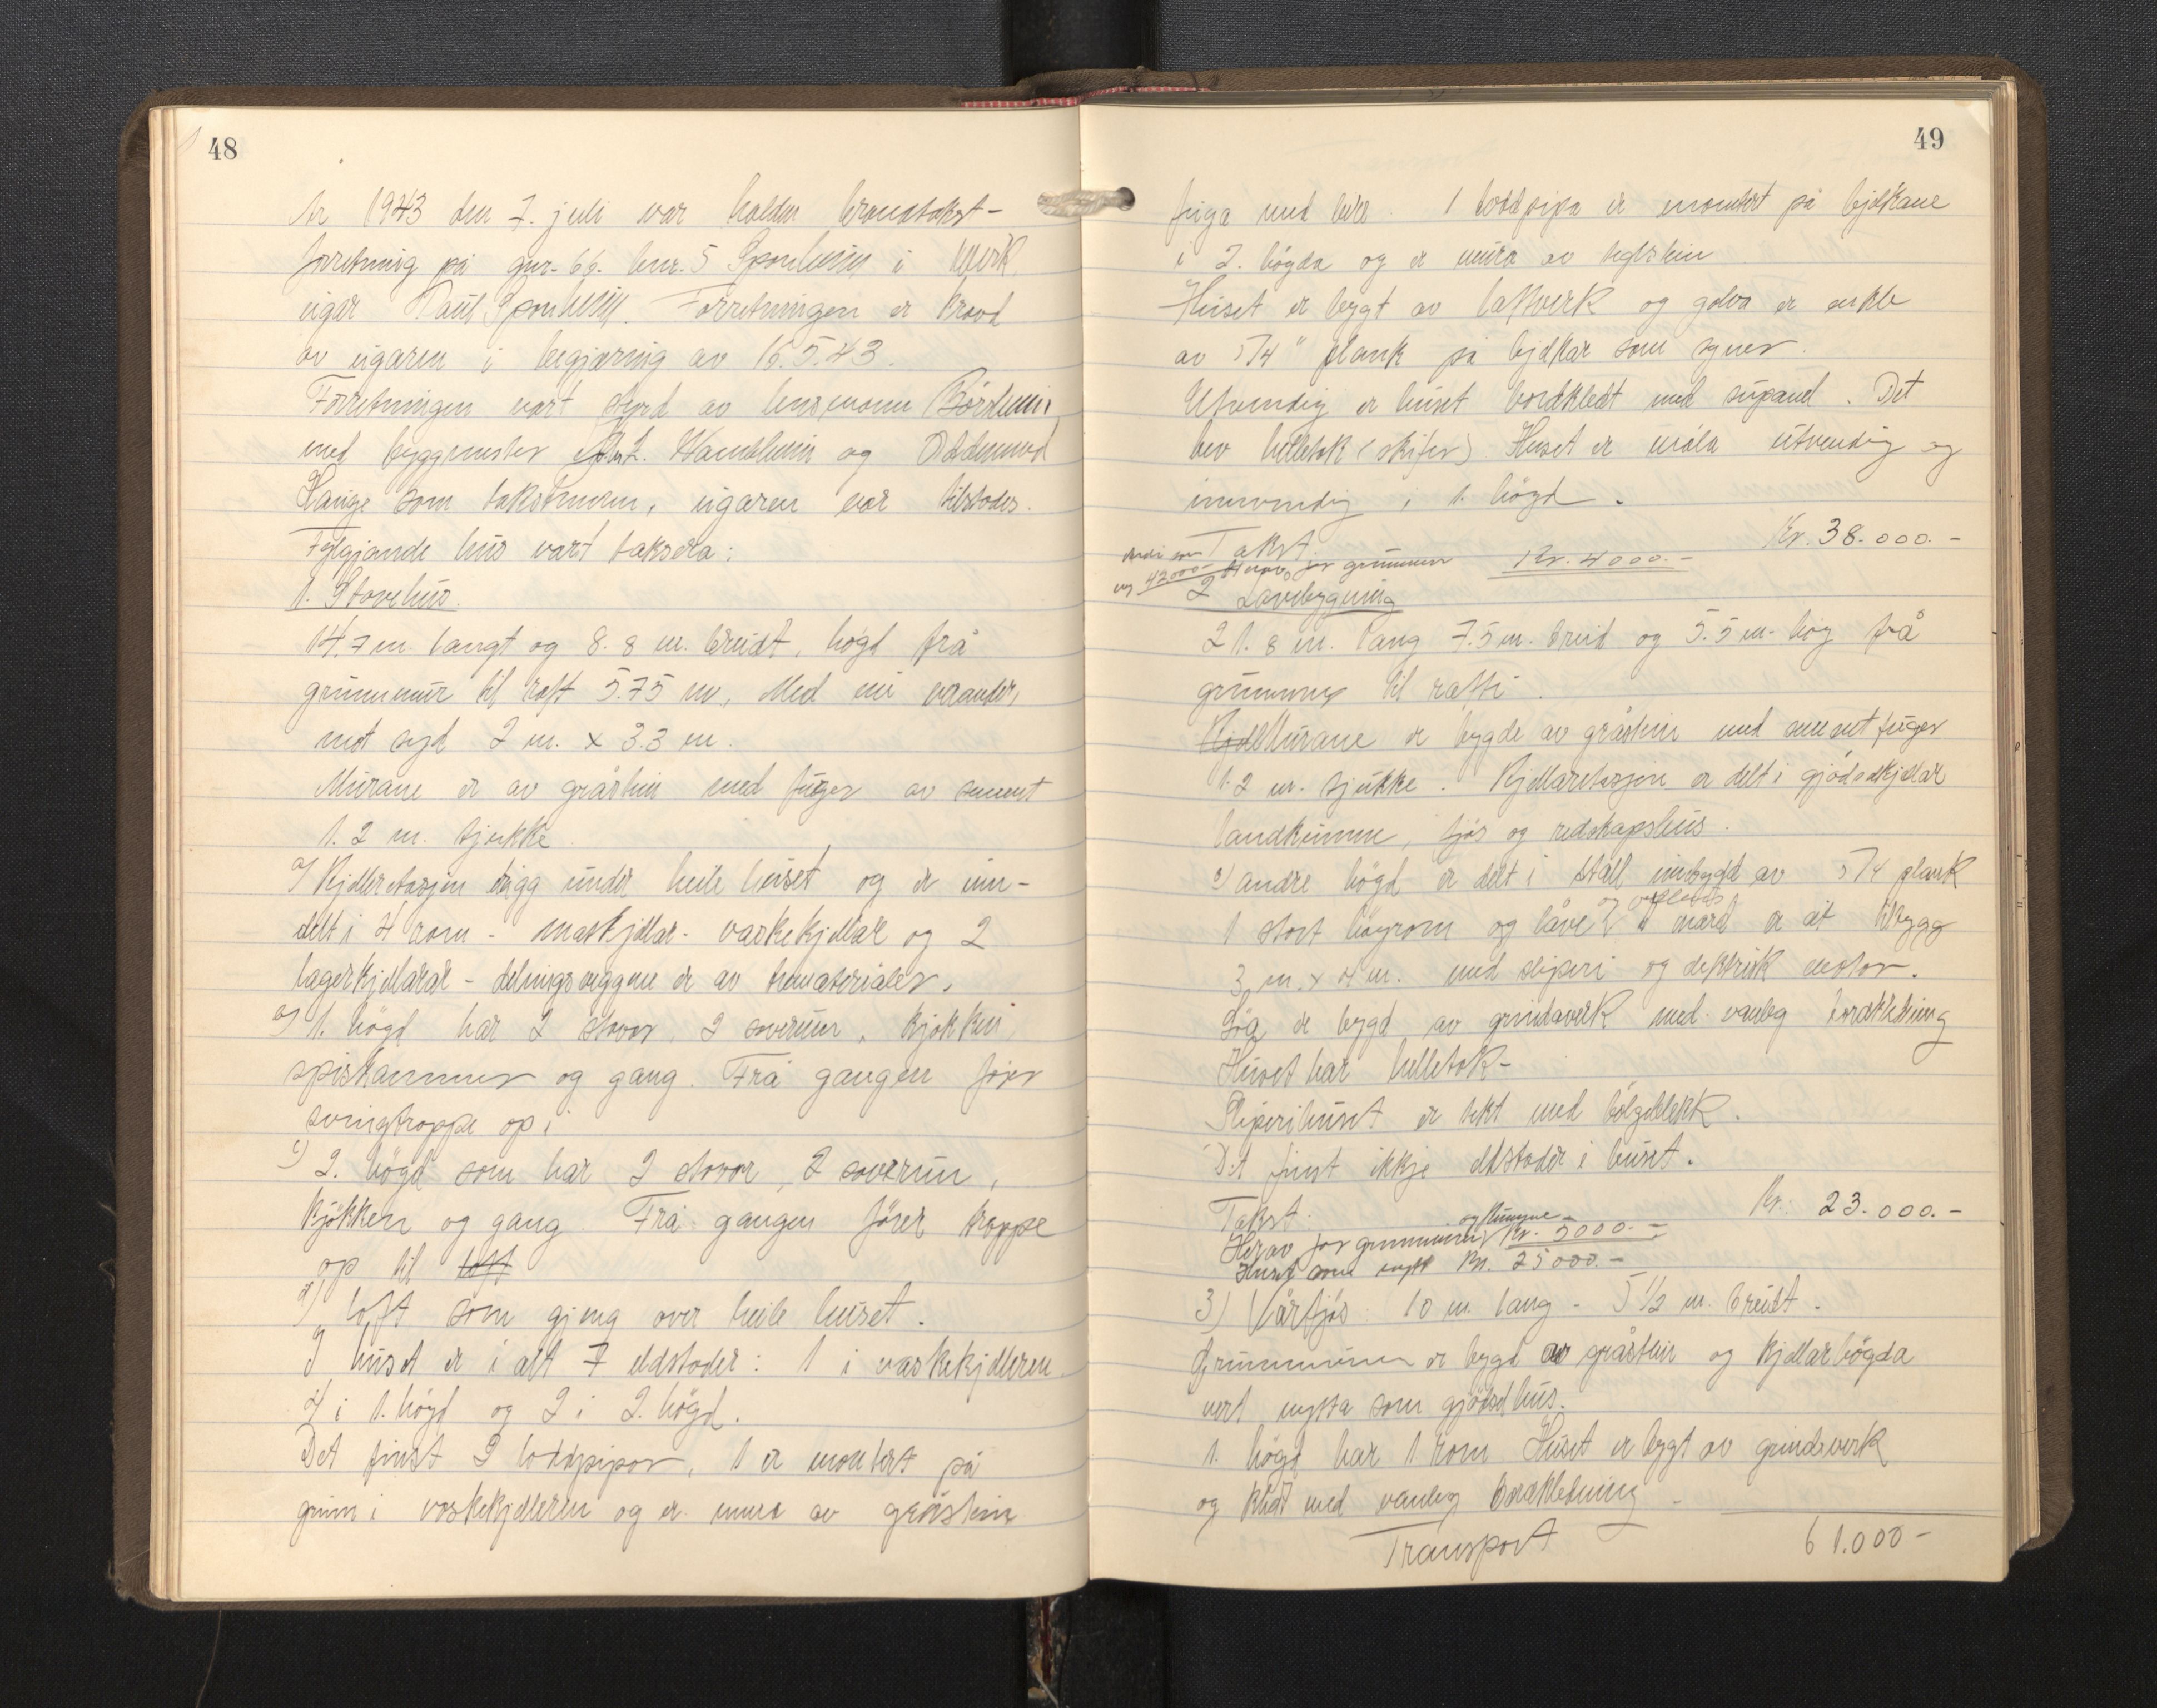 48
År 1943 den 7. juli var halden branntakst-
forretning på gnr. 66. bnr. 5 Sponheim i Ulvik
eigar Paul Sponheim. Forretningen er kravd
av eigaren i begjæring av 16.5.43.
Forretningen vart styrd av lensmann Børsheim
med byggmester Hamsheim og Oddmund
Lange som takstmenn, eigaren var tilstades.
Fylgjande hus vart taksera:
1. Stovehus.
14.7 m. langt og 8.8 m. breidt, høgd frå
grunnmur til raft 5.75 m, Med ein verander,
mot syd 2 m. x 3.3 m.
Murane er av gråstein med fuger av sement
1.2 m. tjukke.
a) Kjelleretasjen ligg under heile huset og er inn-
delt i 4 rom - matkjellar - vaskekjellar og 2
lagerkjellarar - delingsveggene er av trematerialer.
b) 1. høgd har 2 stover, 2 soverum, kjøkken
spiskammer og gang. Frå gangen fører
svingtrappe op i
c) 2. høgd som har 2 stovor, 2 soverum,
kjøkken og gang. Frå gangen fører trappe
op til loft
d) loft som gjeng over heile huset.
I huset er i alt 7 eldstader: 1 i vaskekjelleren
4 i 1. høgd og 2 i 2. høgd.
Det finst 2 loddpipor, 1 er montert på
grunn i vaskekjelleren og er mura av gråstein
49
fuga med leire. 1 loddpipa er montert på bjelkane
i 2. høgda og er mura av teglstein
Huset er bygt av laftverk og golva er enkle
av 5/4" plank på bjelkar som syner.
Utvendig er huset bordkledt med supanel. Det
hev helletak (skifer) Huset er måla utvendig og
innvendig i 1. høgd.
Takst. Kr. 38.000.-
Verdi som ny 42000- Herav for grunnmur Kr. 4000.-
2 Løebygning
21.8 m. lang 7.5 m. breid og 5.5 m. høg frå
grunnmur til raft.
Kjellmurane er bygde av gråstein med sementfuger
1.2 m. tjukke. Kjellaretasjen er delt i gjødselkjellar
landkumme, fjøs og redskapshus.
a) andre høgd er delt i stall innbygd av 5/4 plank
1 stort høyrom og låve og mot nord er eit tilbygg
3 m. x 4 m. med sliperi og elektrisk motor.
Løa er bygd av grindaverk med vanleg bordkledning
Huset har helletak-
Sliperihuset er tekt med bølgeblekk.
Det finst ikkje eldstader i huset.
Takst. Kr. 23.000.-
Herav for grunnmur og kumme Kr. 5000.-
Huset som nytt Kr. 25000.-
3) Vårfjøs: 10 m. lang - 5 1/2 m. breidt.
Grunnmuren er bygd av gråstein og kjellarhøgda
vert nytta som gjødselhus.
1. høgd har 1 rom. Huset er bygt av grindaverk
og kledt med vanleg bordkledning -
Transport 61.000-